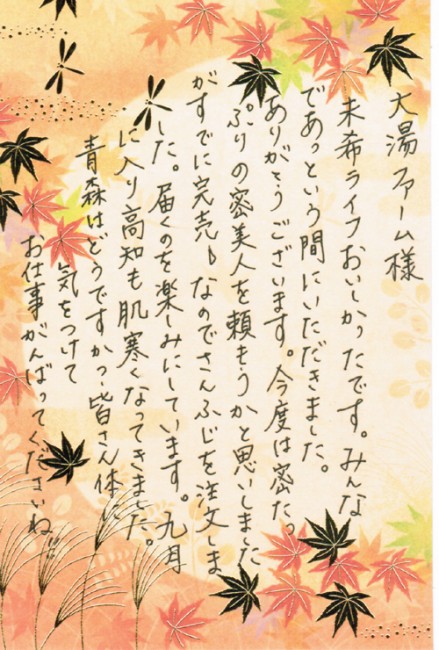 大湯ファーム様
未希ライフおいしかったです。みんな
であっという間にいただきました。
ありがとうございます。今度は密たっ
ぷりの密美人を頼もうかと思いました
がすでに完売なのでさんふじを注文しま
した。届くのを楽しみにしています。九月
に入り高知も肌寒くなってきました。
青森はどうですかっ皆さん体に
気をつけて
お仕事がんばってくださいね